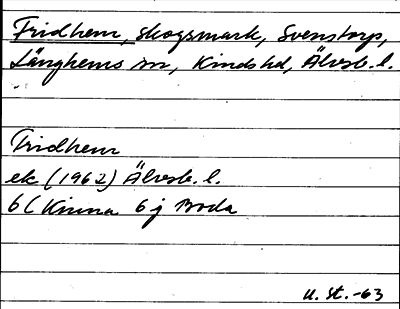 Fridhem, skogsmark, Svenstorp,
Länghems sn, Kinds hd, Älvsb. l.
Fridhem
ek (1962) Älvsb. l.
6C Kinna 6 j Boda
U. St. -63